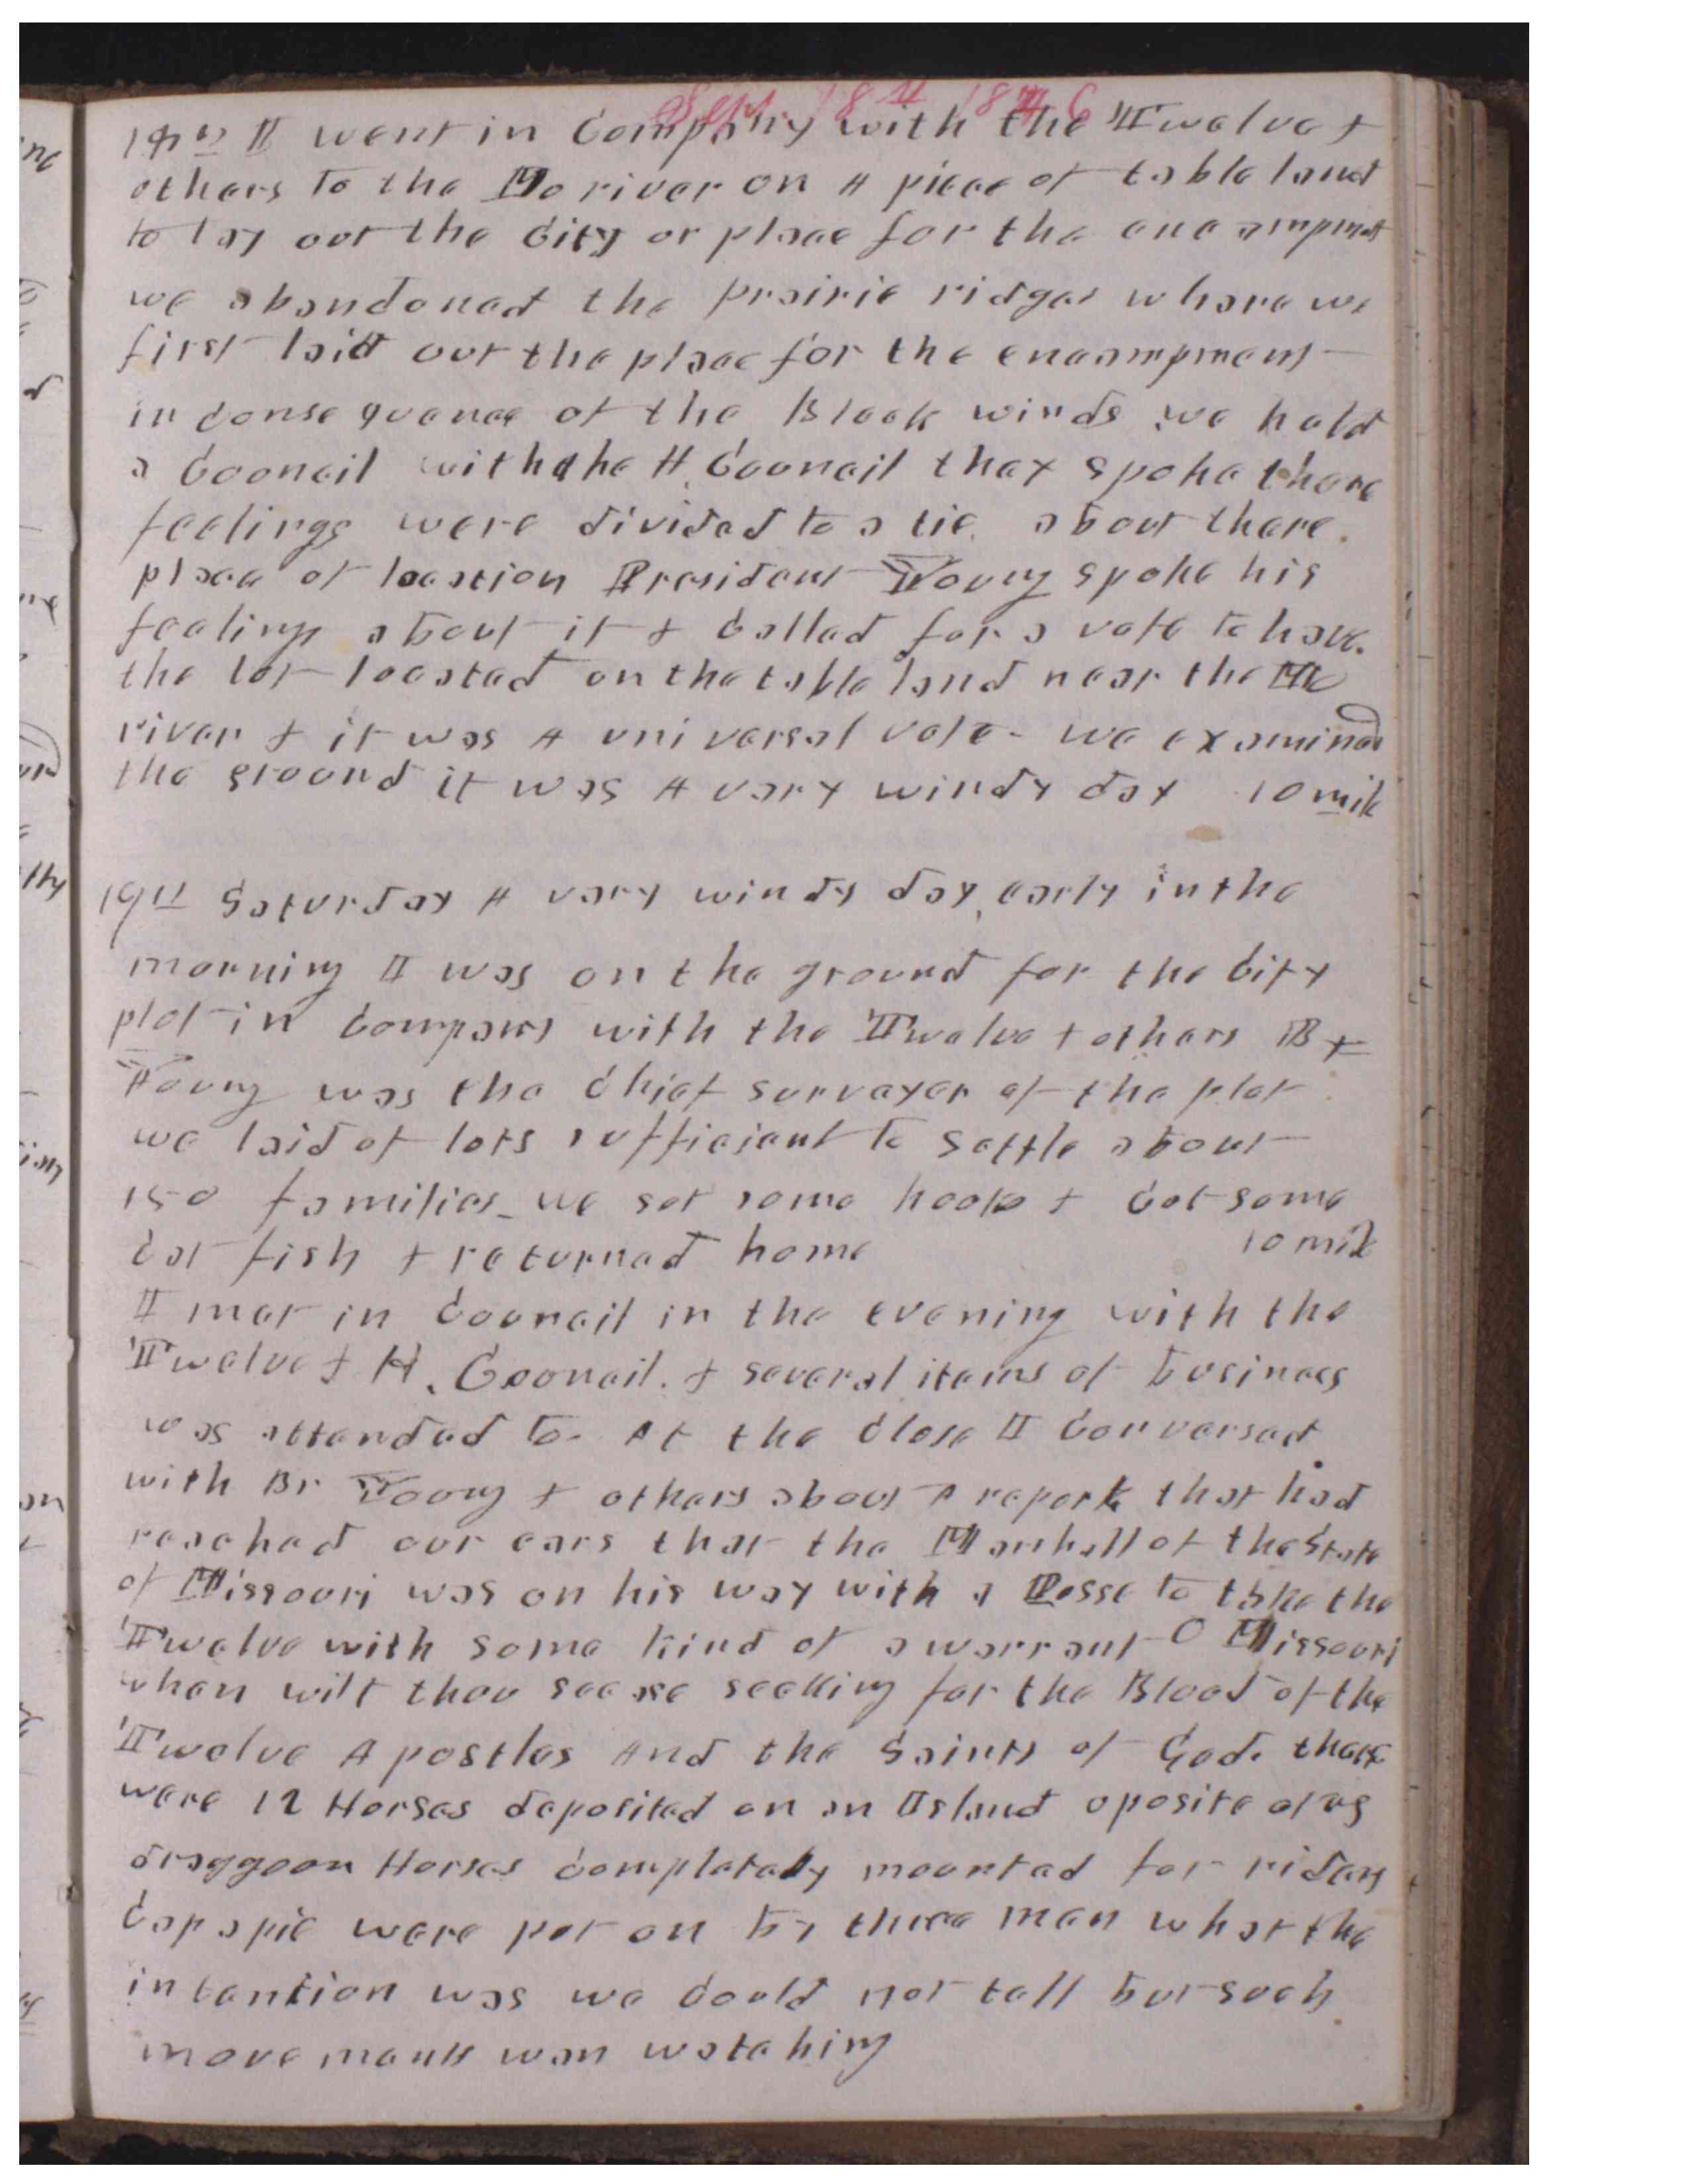 Sept. 18th 1846
18th I went in Company with the Twelve &
others to the Mo river on A piece of table land
to lay out the City or place for the encampmet
we abandoned the prairie ridges where we
first laid out the place for the encampment
in consequence of the Bleek winds we held
a Council with the H. Council that spoke there
feelings were divided to a tie about there
place of location President Young spoke his
feelings about it & Called for a vote to have
the lot located on the table land near the Mo
river & it was A universal vote - we examined
the ground it was A very windy day 10 mile
19th Saturday A very windy day, early in the
morning I was on the ground for the City
plot in Company with the Twelve & others Br
Young was the Chief survayer of the plot
we laid of lots sufficient to settle about
150 families - we set some hooks & Cot some
Cat fish & returned home 10 mile
I met in Council in the evening with the
Twelve & H. Council. & several items of business
was attended to - At the Close I Conversed
with Br Young & others about A report that had
reached our ears that the Marshall of the State
of Missouri was on his way with a Posse to take the
Twelve with some kind of a warrant O Missouri
when wilt thou seease seeking for the Blood of the
Twelve Apostles And the Saints of God. there
were 12 Horses deposited on an Island oposite of us
draggoon Horses Completely mounted for riders
Cap a pie were put on by three men what the
intention was we Could not tell but such
movements wan watching